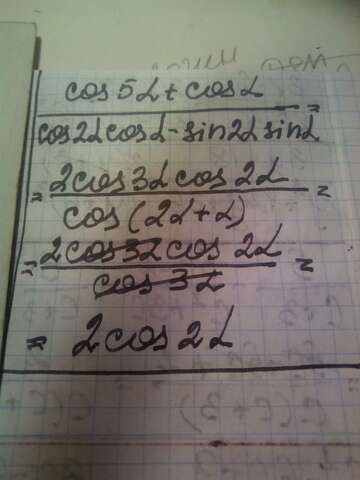 cos 5α + cos α
=
cos 2α cos α - sin 2α sin α
= 2 cos 3α cos 2α =
cos (2α + α)
= 2 cos 3α cos 2α =
cos 3α
= 2 cos 2α